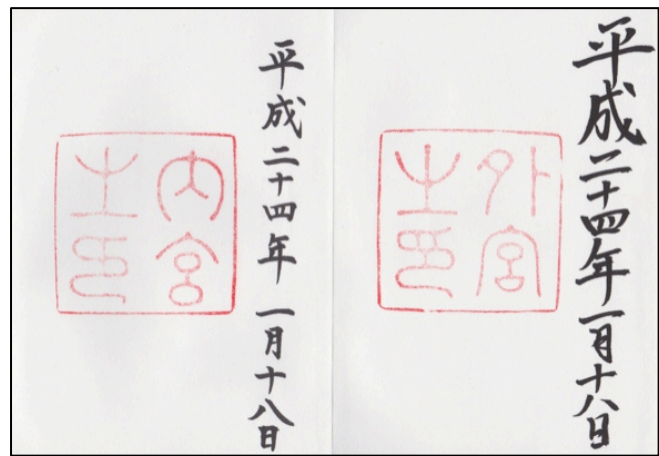 平成二十四年一月十八日
外宮
之印
平成二十四年一月十八日
内宮
之印